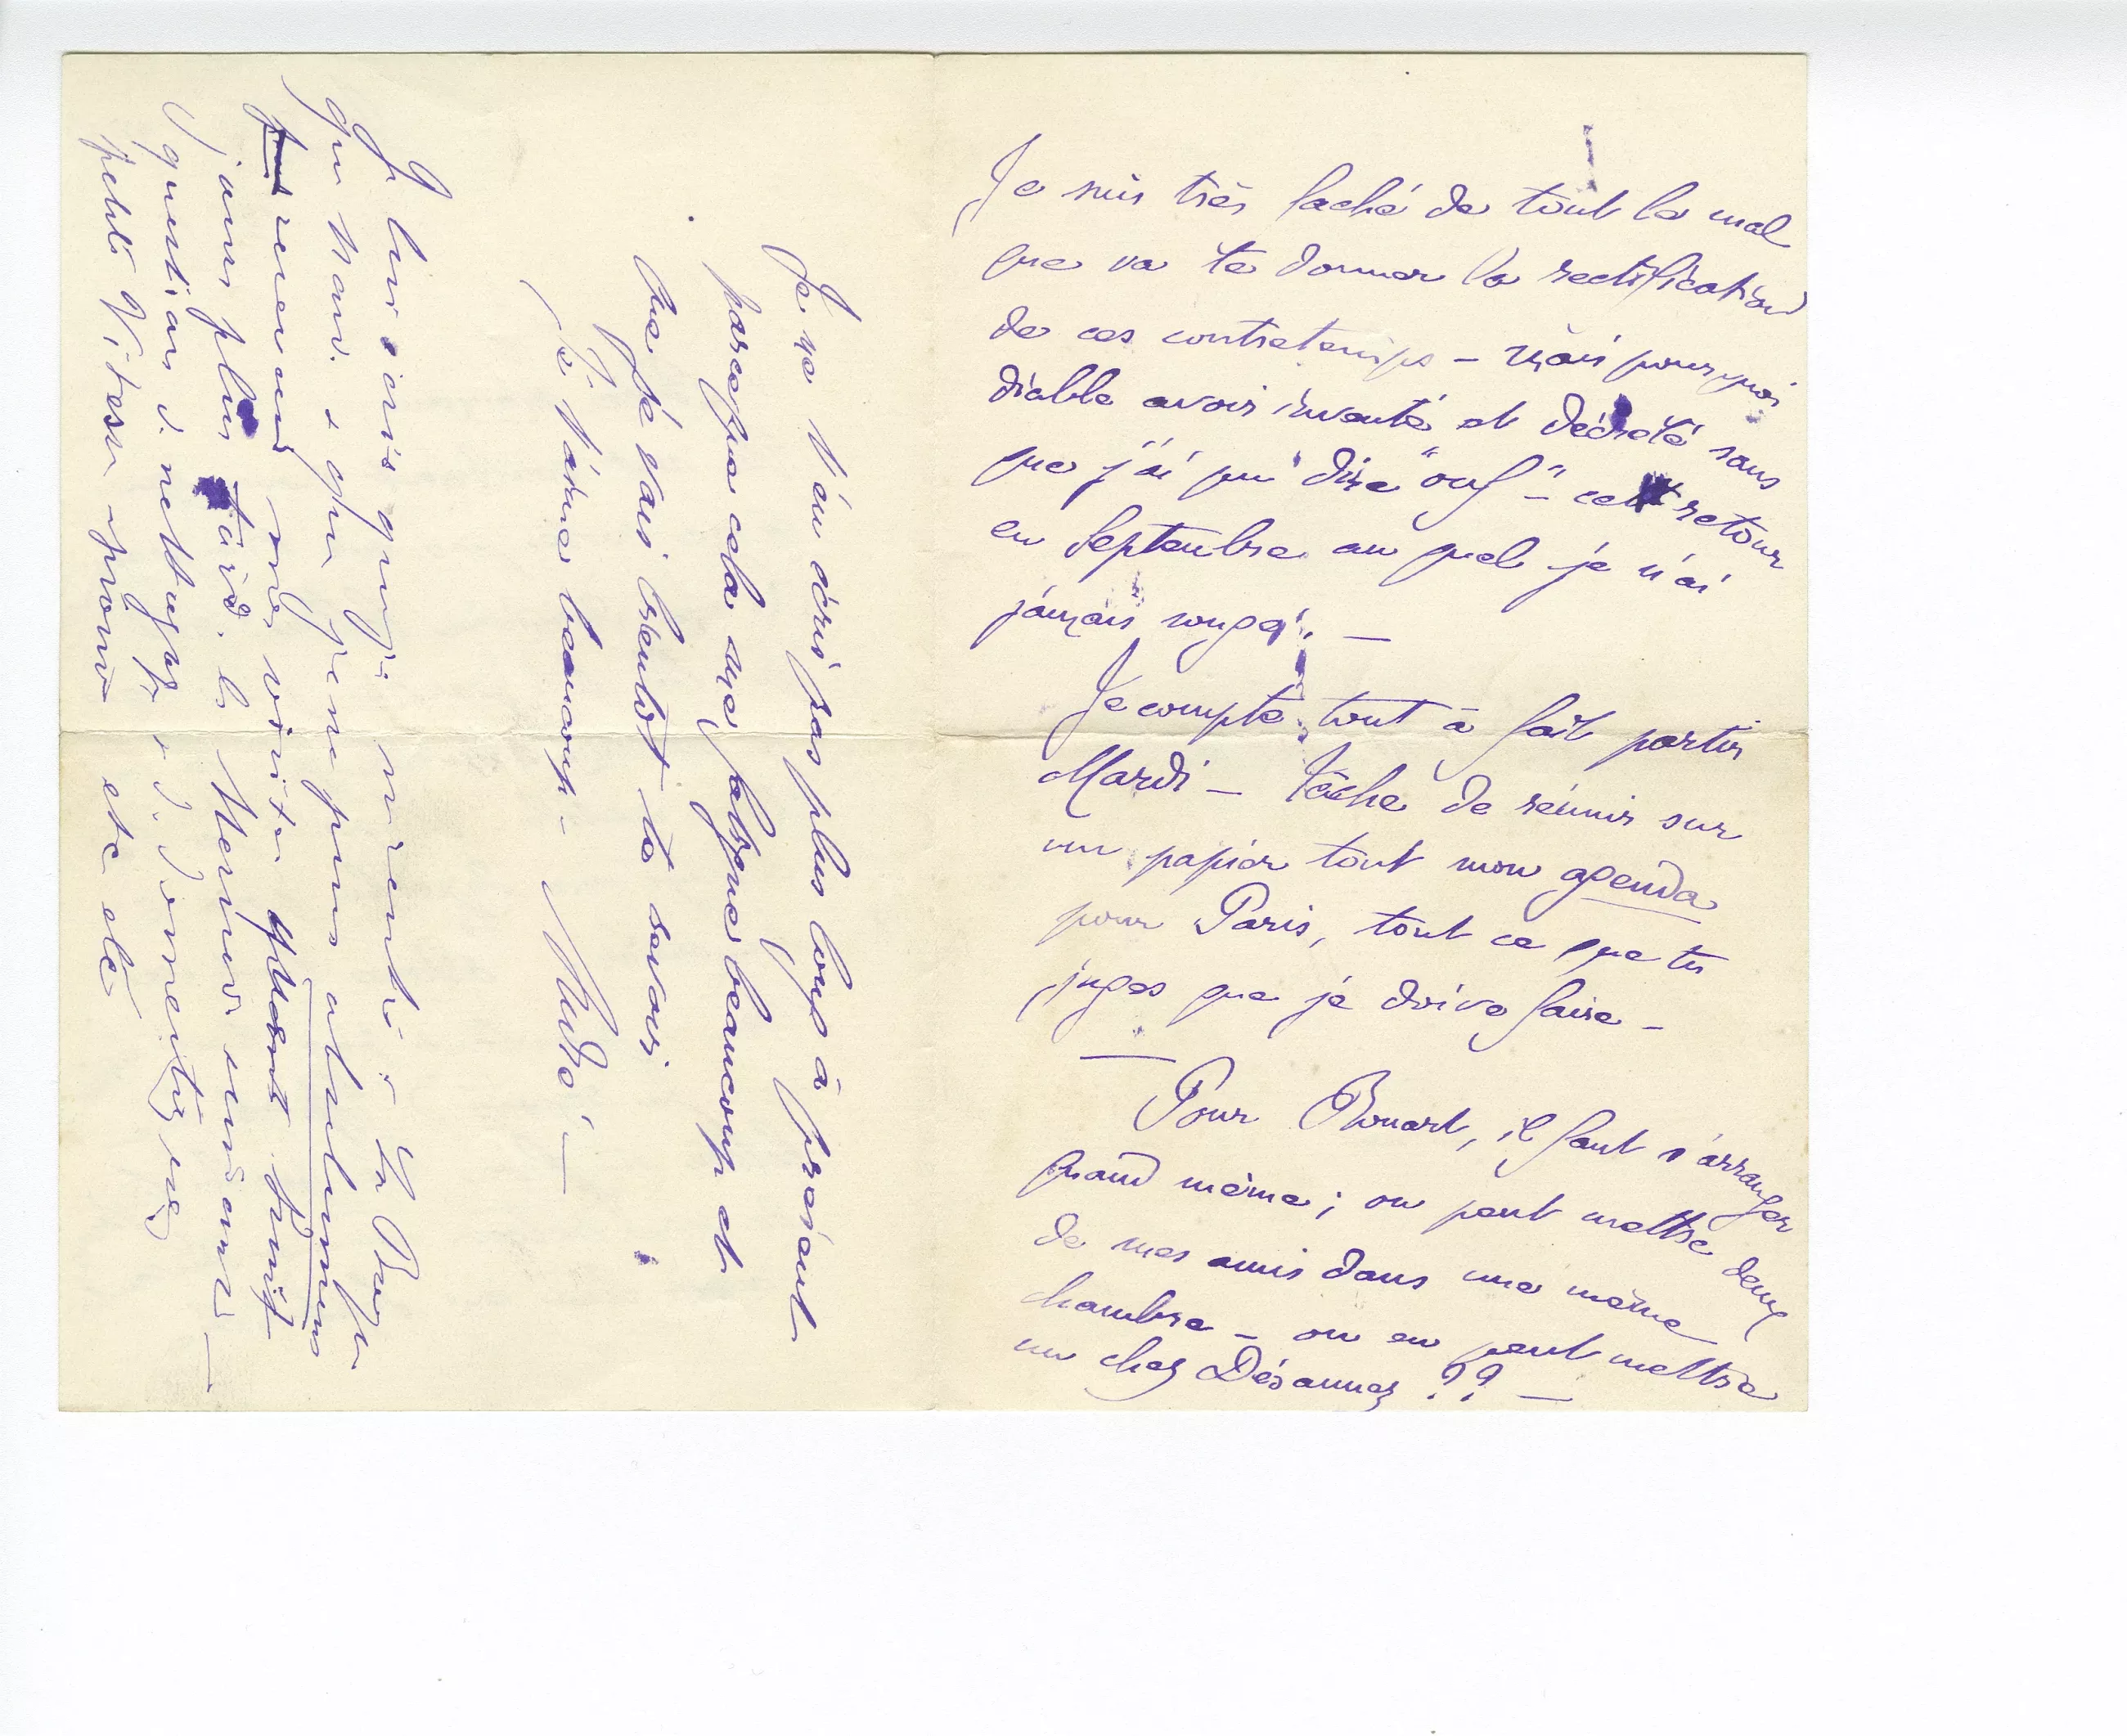 Je suis très faché de tout le mal
que va te donner la rectification
de ces contretemps – mais pourquoi
diable avoir inventé et décrété sans
que j'ai pu dire "ouf" – ce retour
en Septembre au quel je n'ai
jamais songé. –
Je compte tout à fait partir
Mardi – tâche de réunir sur
un papier tout mon agenda
pour Paris, tout ce que tu
juges que je doive faire –
Pour Rouart, il faut s'arranger
quand même; on peut mettre deux
de mes amis dans une même
chambre – on en peut mettre
un chez Désannez ?? –
Je ne t'en écris pas plus long à présent
parceque cela me fatigue beaucoup et
que je vais bientôt te revoir
Je t'aime beaucoup –
Je lui avis que je
que nous que je ne puis absolument
recevoir ma visite
jours plus tard. le
question de nettoyage de domestiques
petite Vitesse etc etc